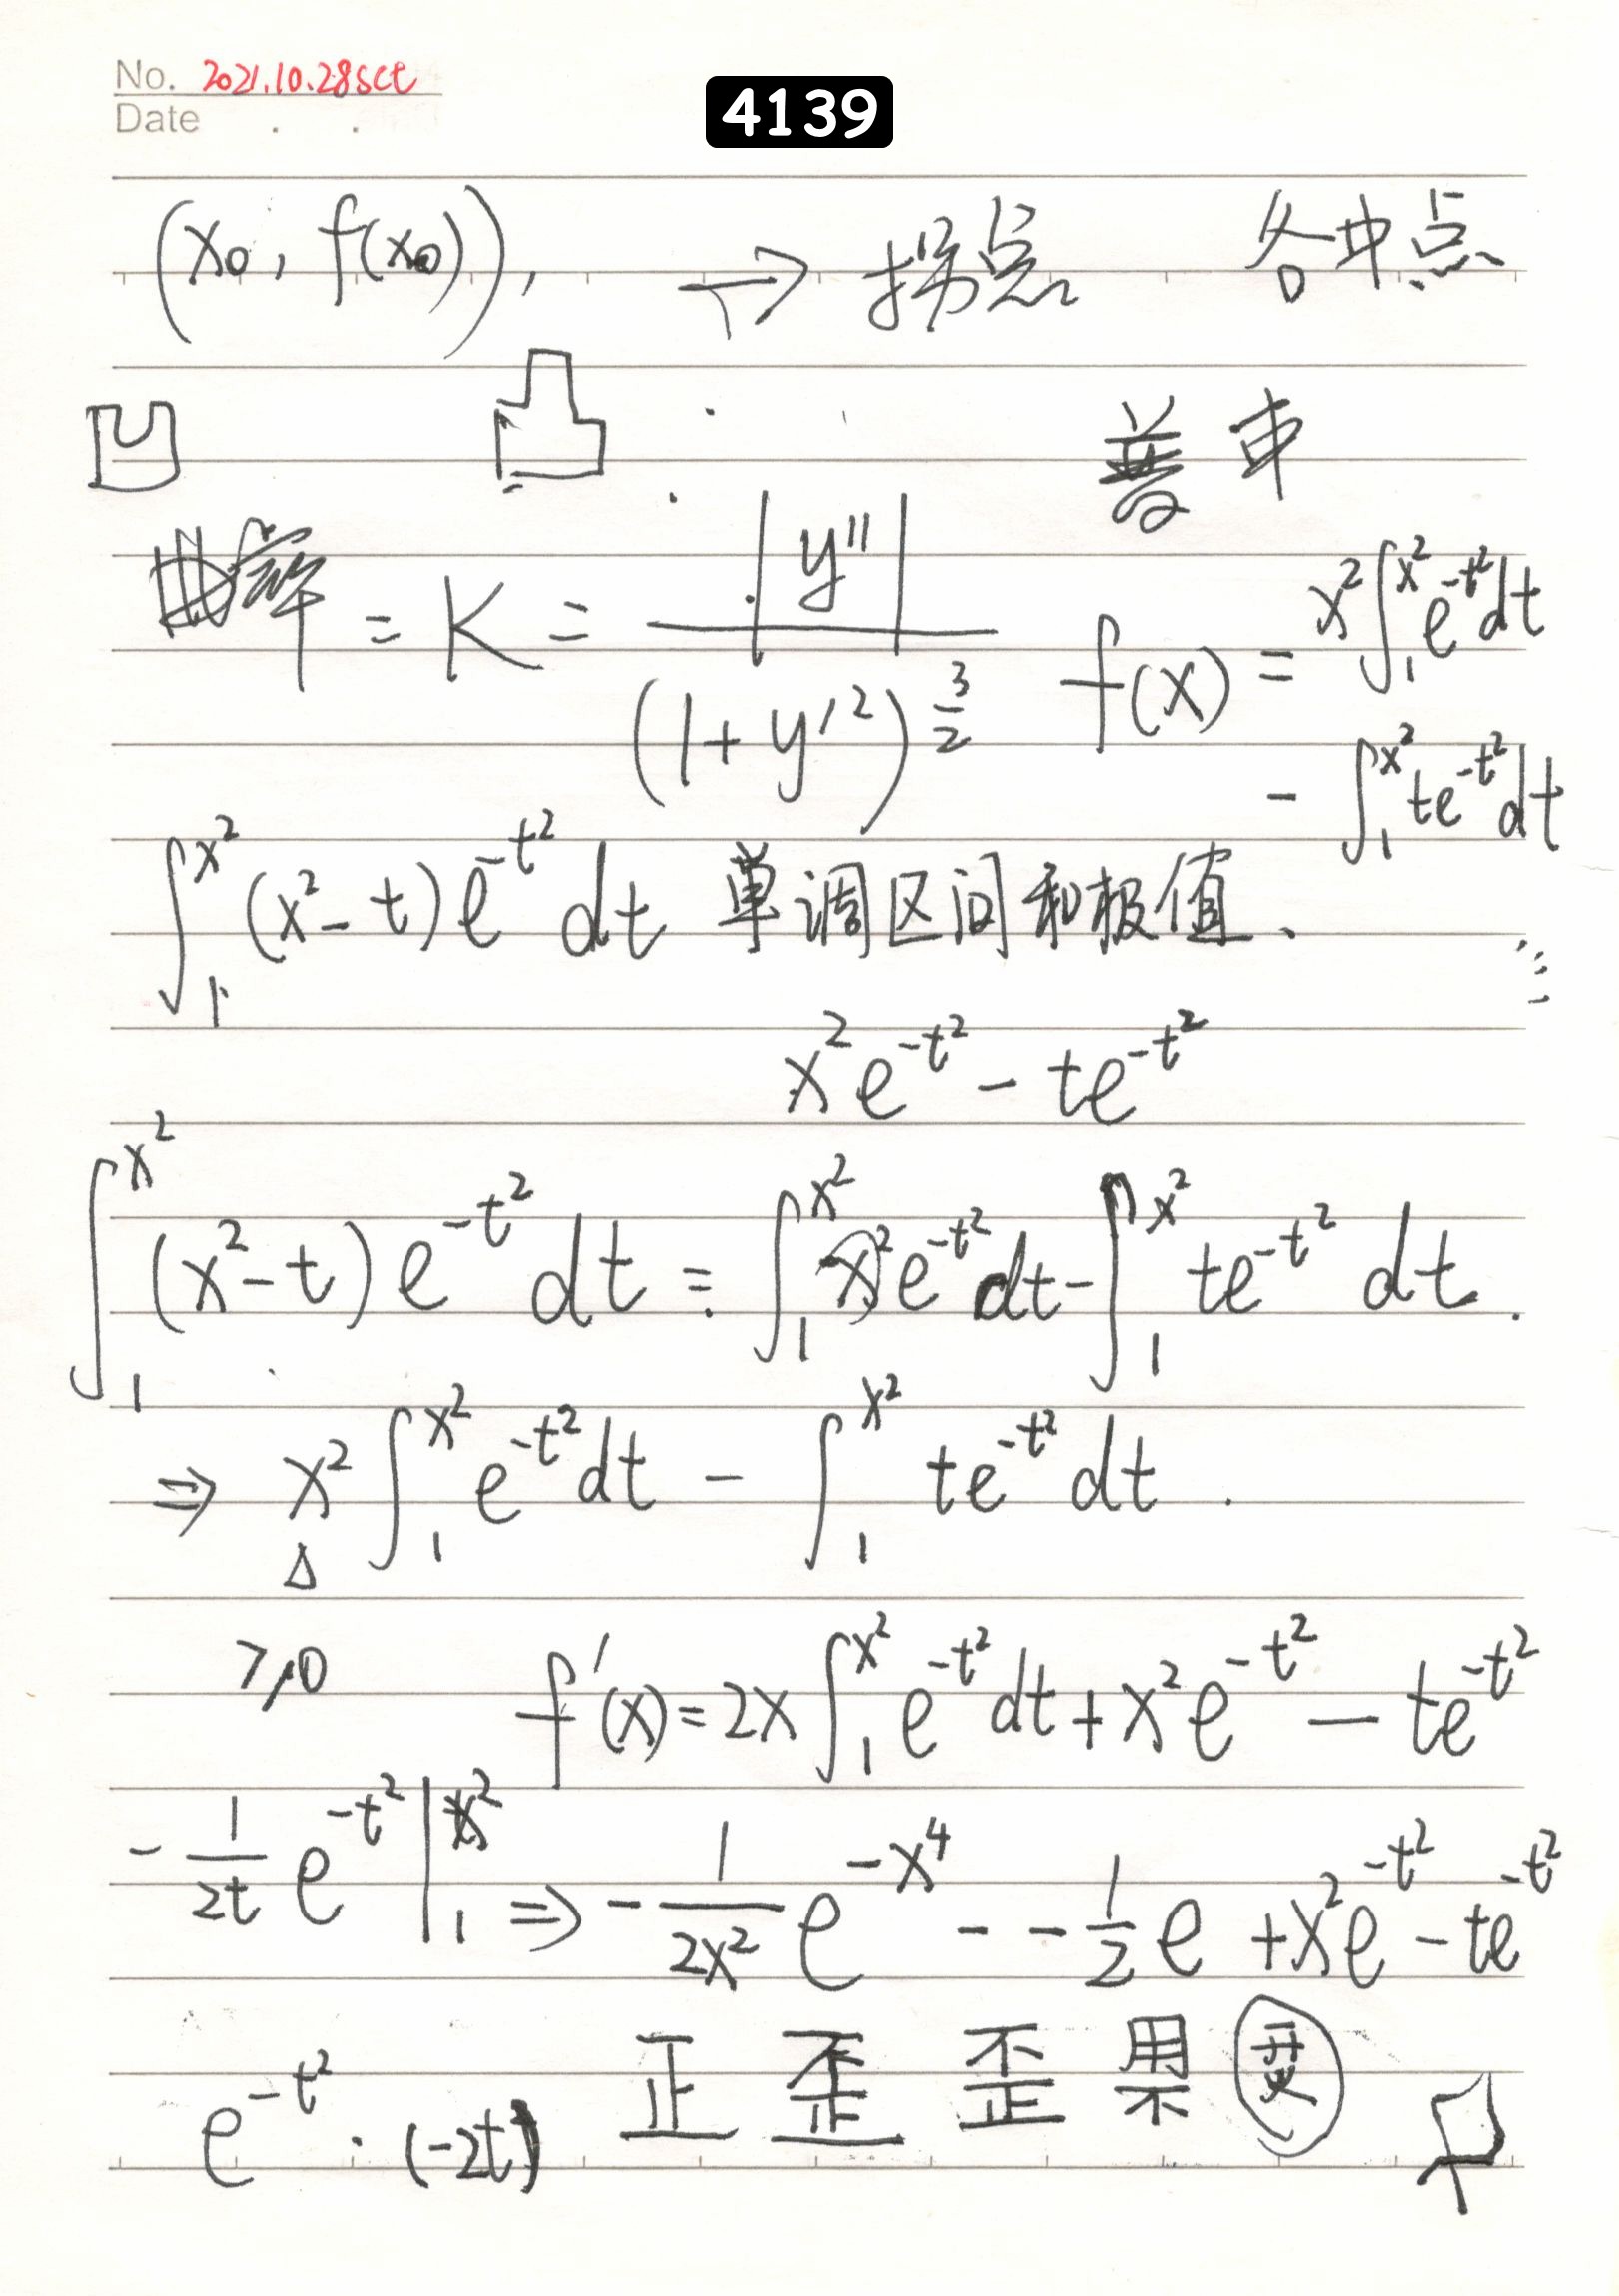 No. 2021.10.28sct
Date . .
4139
(x₀, f(x₀)), → 拐点 各中点
凹 凸 普
率 = K = |y''| / (1 + y'²)^(3/2)
f(x) = x²∫₁^(x²) e^(-t²) dt
- ∫₁^(x²) te^(-t²) dt
∫₁^(x²) (x² - t) e^(-t²) dt 单调区间和极值、
x²e^(-t²) - te^(-t²)
∫₁^(x²) (x² - t) e^(-t²) dt = ∫₁^(x²) x²e^(-t²) dt - ∫₁^(x²) te^(-t²) dt.
⇒ x² ∫₁^(x²) e^(-t²) dt - ∫₁^(x²) te^(-t²) dt.
Δ
≥0 f'(x) = 2x ∫₁^(x²) e^(-t²) dt + x²e^(-t²) - te^(-t²)
- 1/(2t) e^(-t²) |₁^(x²) ⇒ - 1/(2x²) e^(-x⁴) - - 1/2 e + x²e^(-t²) - te^(-t²)
e^(-t²) · (-2t) 正 歪 歪